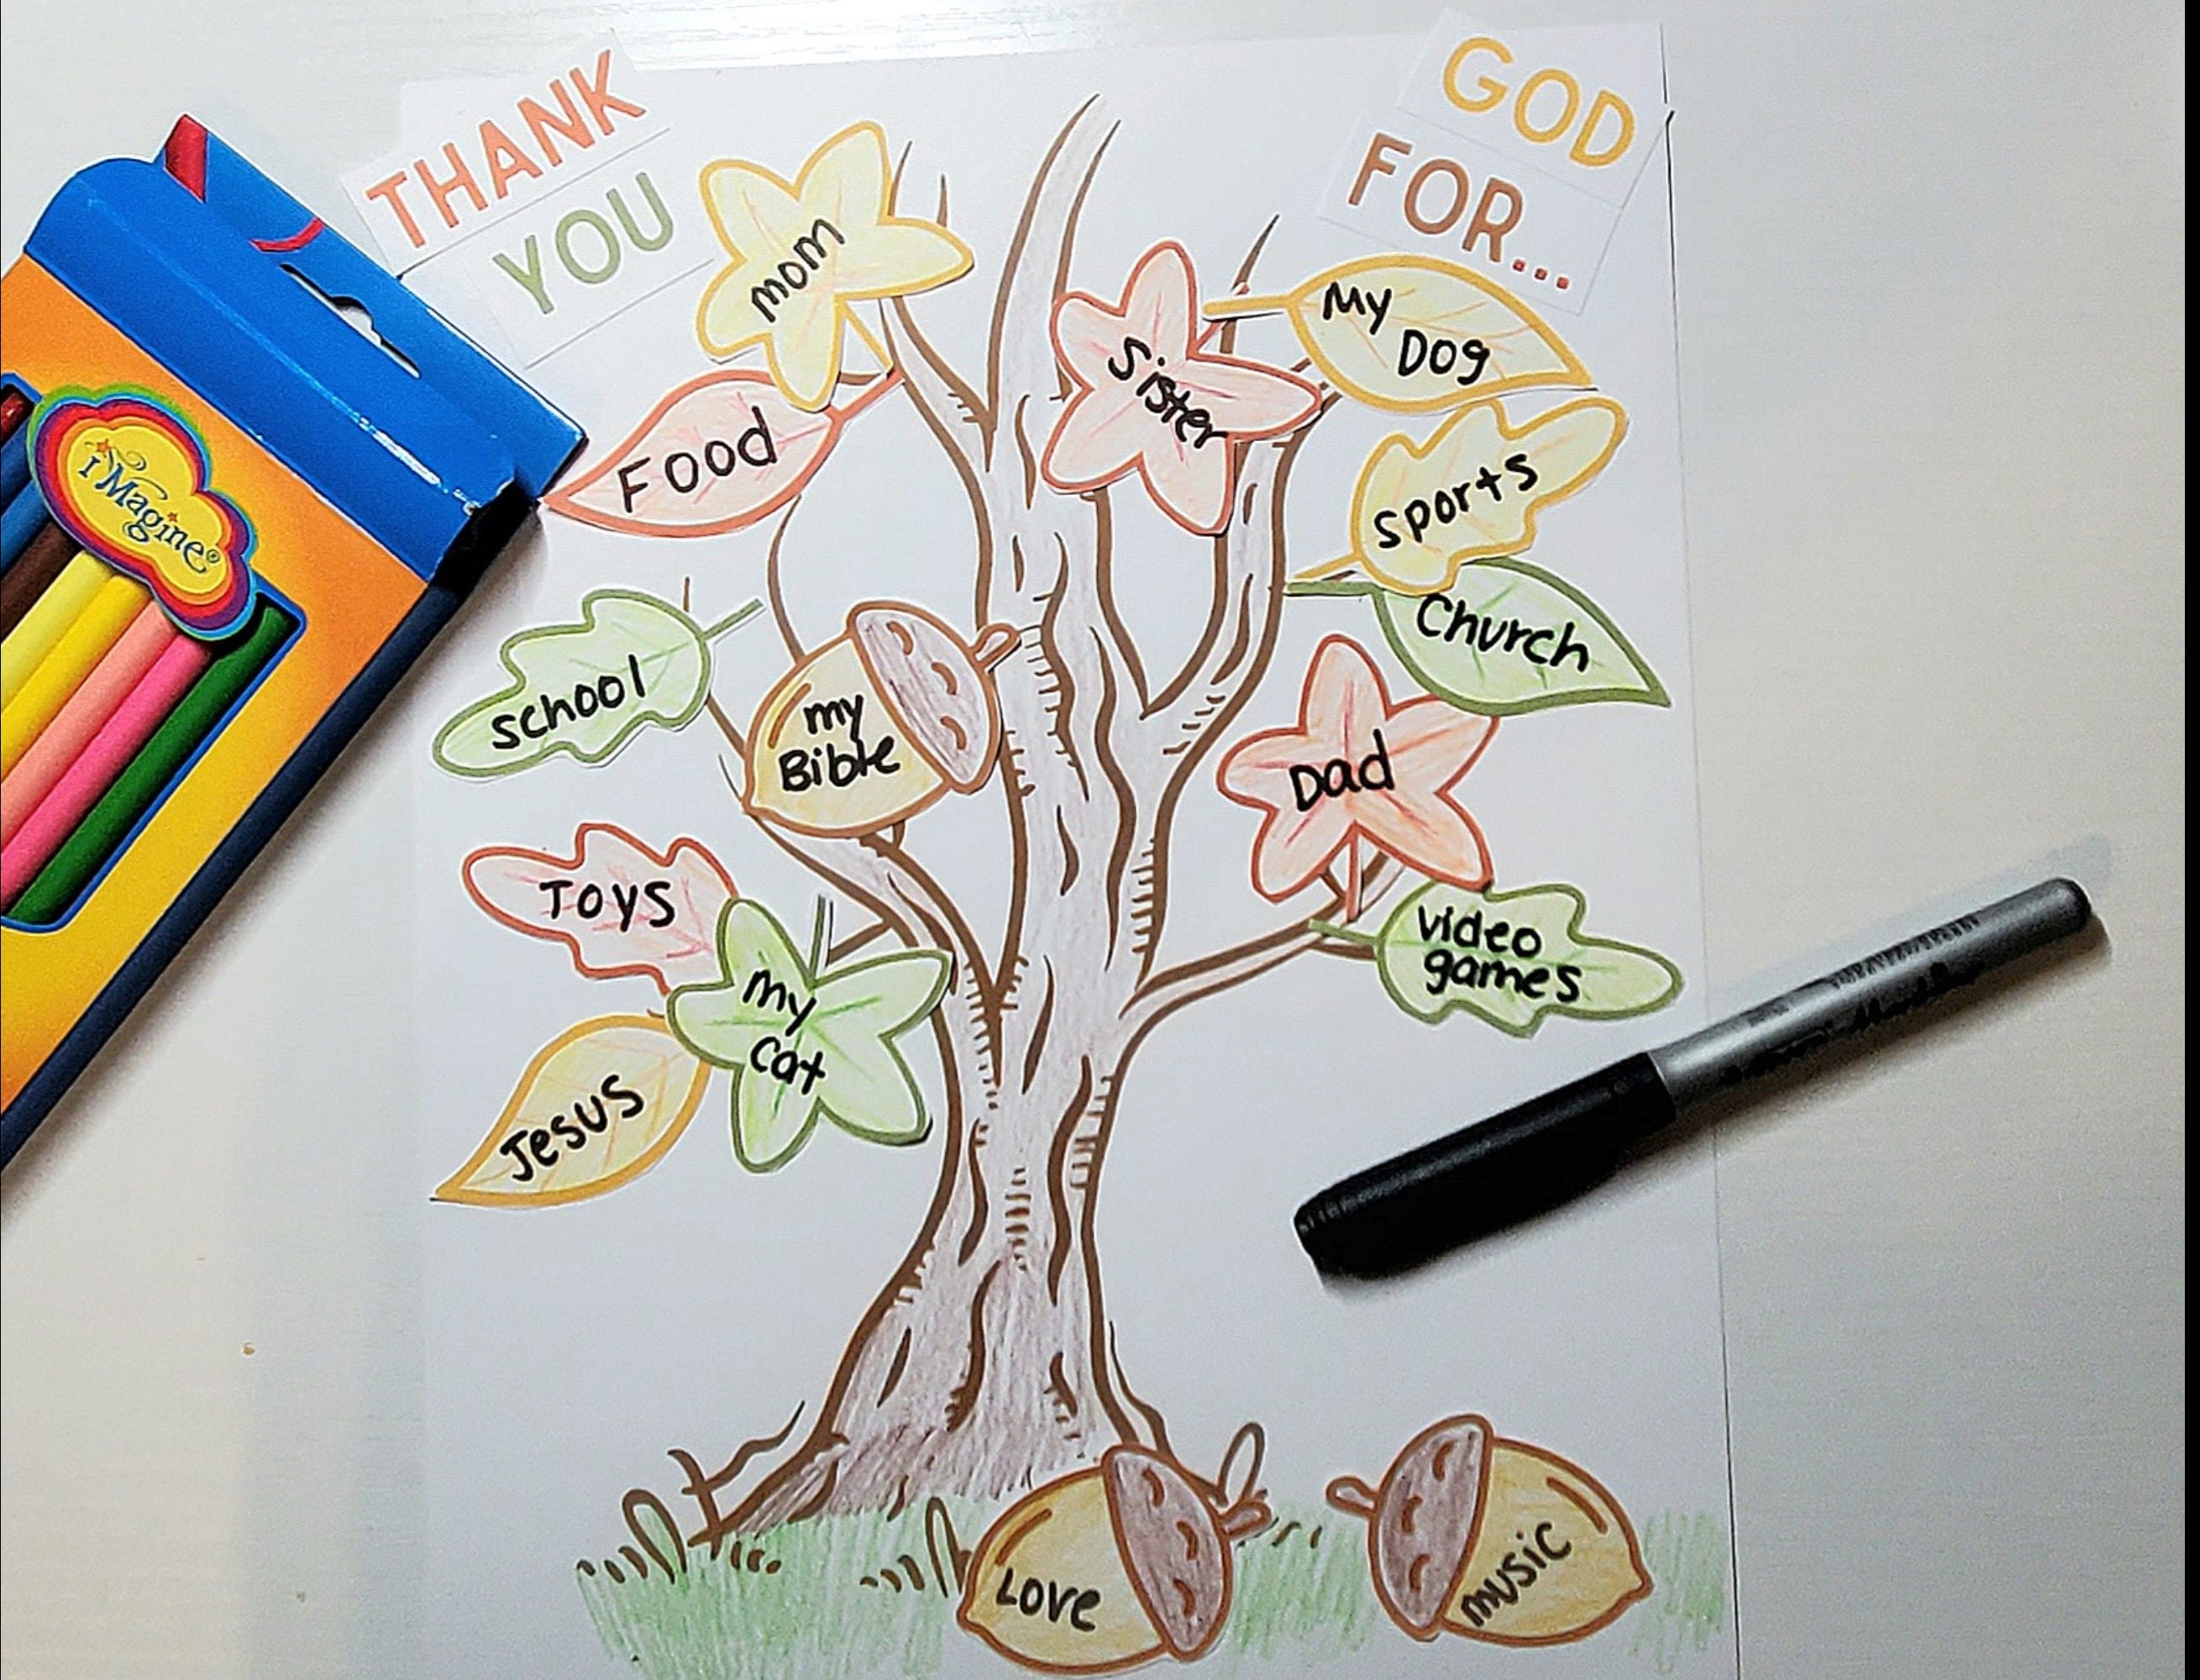 THANK
YOU
GOD
FOR...
mom
Food
Sister
My
Dog
Sports
I'Magine®
school
my
Bible
Church
Dad
TOYS
my
cat
video
games
Jesus
LOVE
music